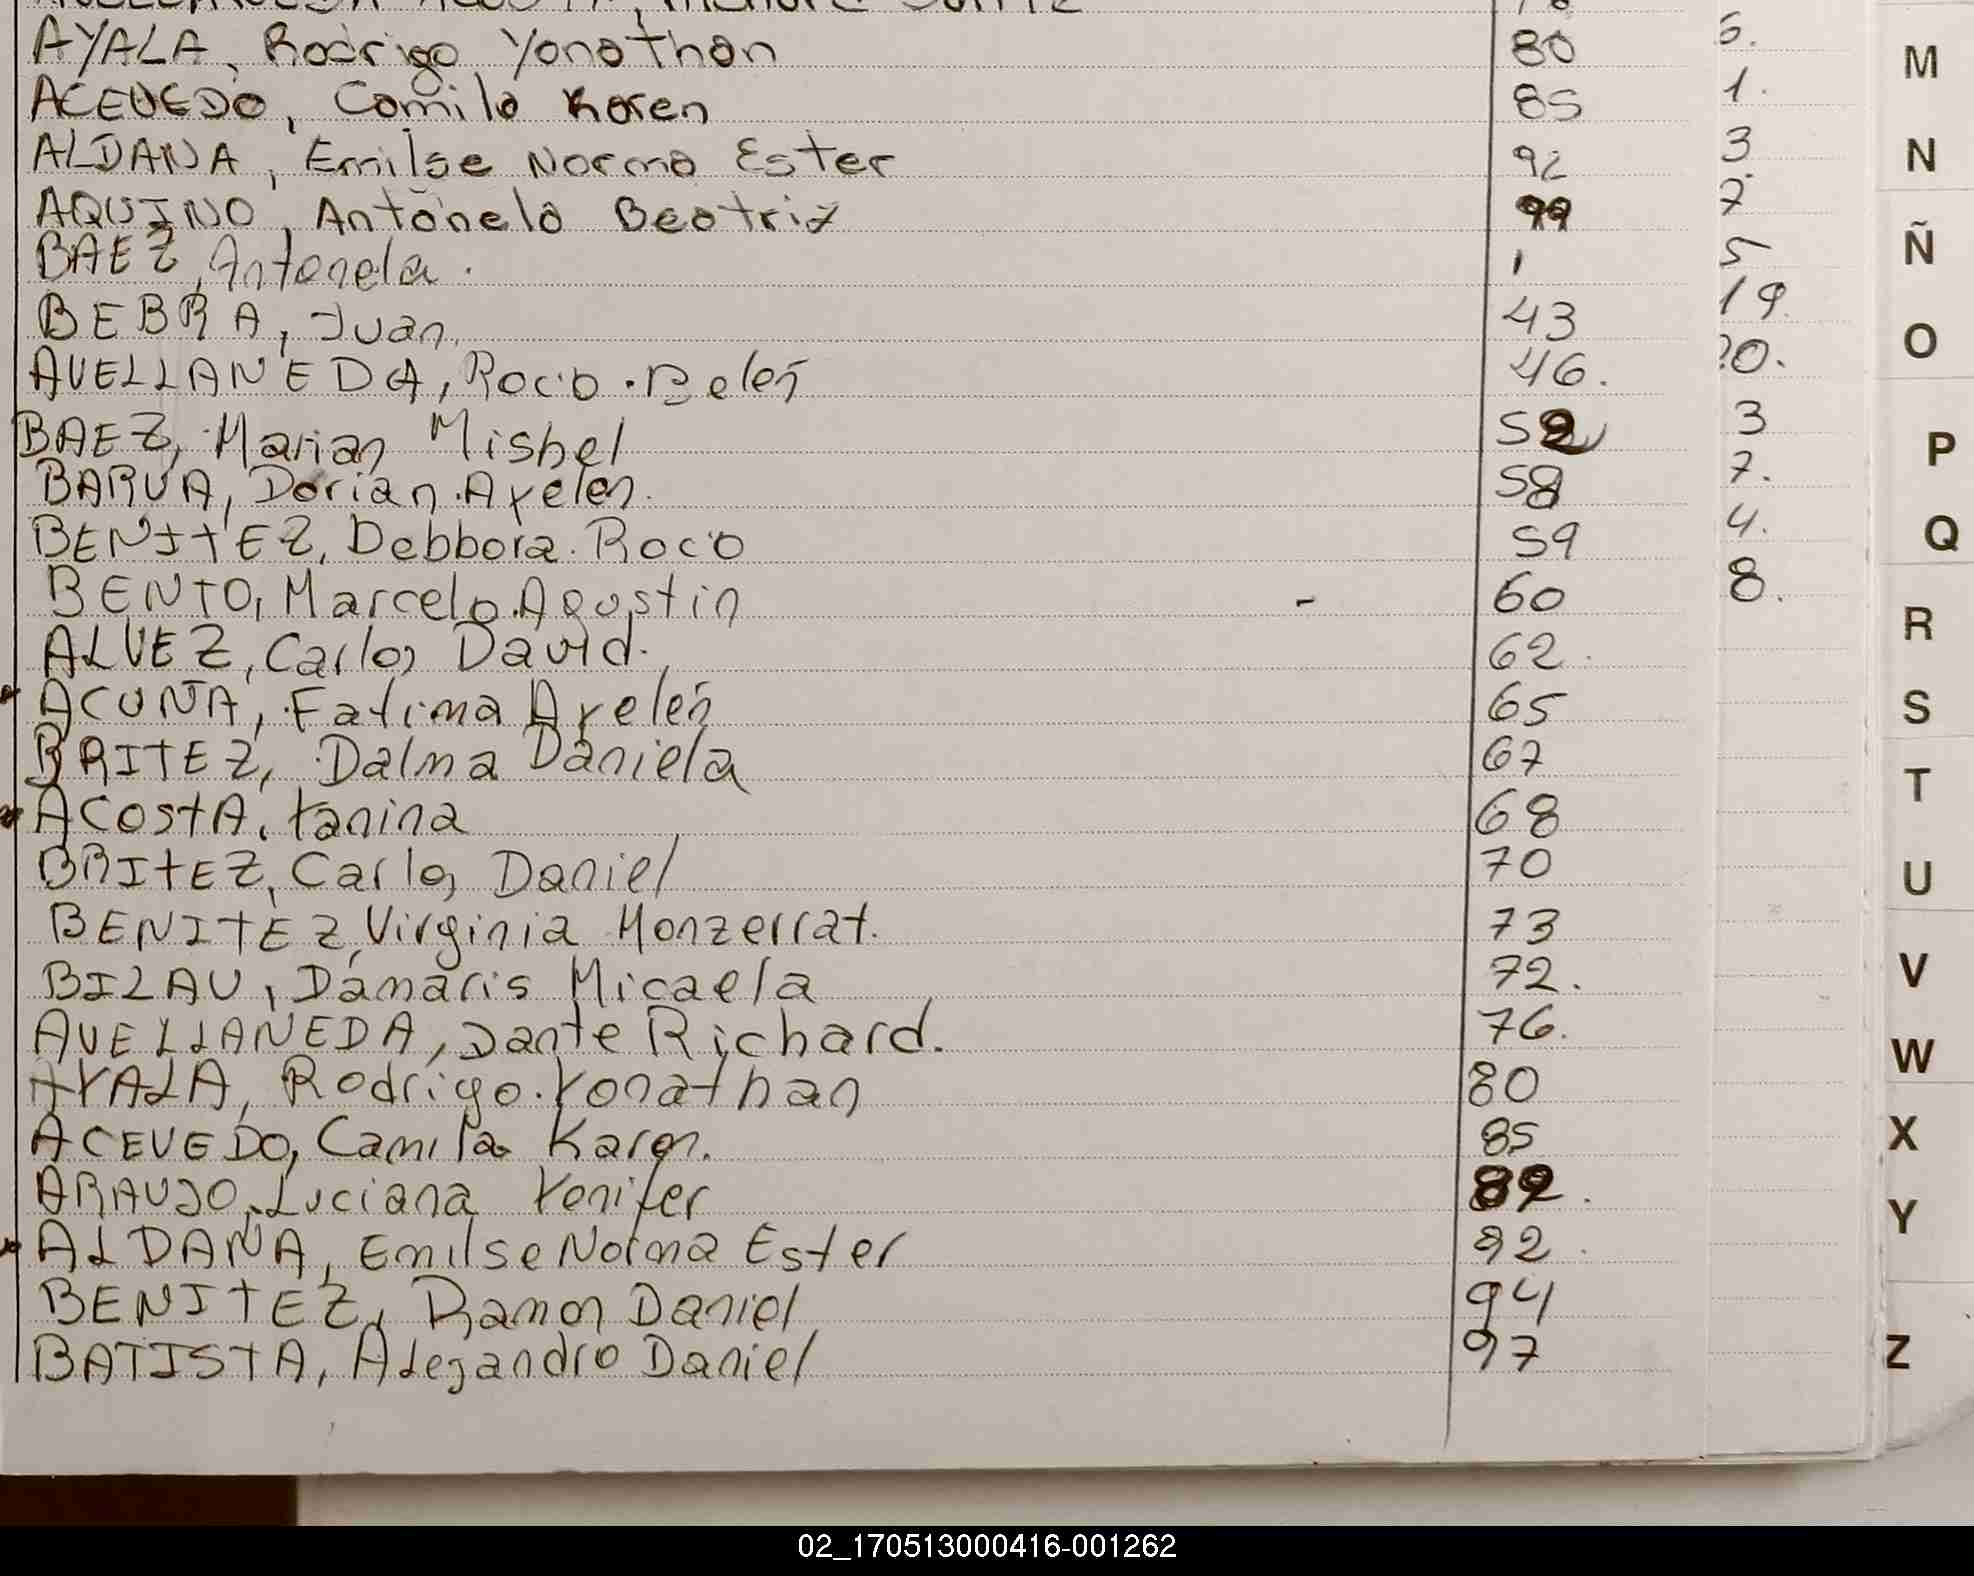 AYALA, Rodrigo Yonathan 80 5.
ACEVEDO, Camila Karen 85 1.
ALDANA, Emilse Norma Ester 92 3
AQUINO, Antonela Beatriz 99 7
BAEZ, Antonela. 1 5
BEBRA, Juan. 43 19.
AVELLANEDA, Rocio Belen 46. 20.
BAEZ, Marian Misbel 52 3
BARUA, Dorian Ayelen. 58 7.
BENITEZ, Debbora Rocio 59 4.
BENTO, Marcelo Agustin - 60 8.
ALVEZ, Carlos David. 62.
ACUÑA, Fatima Ayelen 65
BRITEZ, Dalma Daniela 67
ACOSTA, Yanina 68
BRITEZ, Carlos Daniel 70
BENITEZ, Virginia Monzerrat. 73
BILAU, Damaris Micaela 72.
AVELLANEDA, Dante Richard. 76.
AYALA, Rodrigo Yonathan 80
ACEVEDO, Camila Karen. 85
ARAUJO, Luciana Yenifer 89.
ALDANA, Emilse Norma Ester 92.
BENITEZ, Ramon Daniel 94
BATISTA, Alejandro Daniel 97
M
N
Ñ
O
P
Q
R
S
T
U
V
W
X
Y
Z
02_170513000416-001262